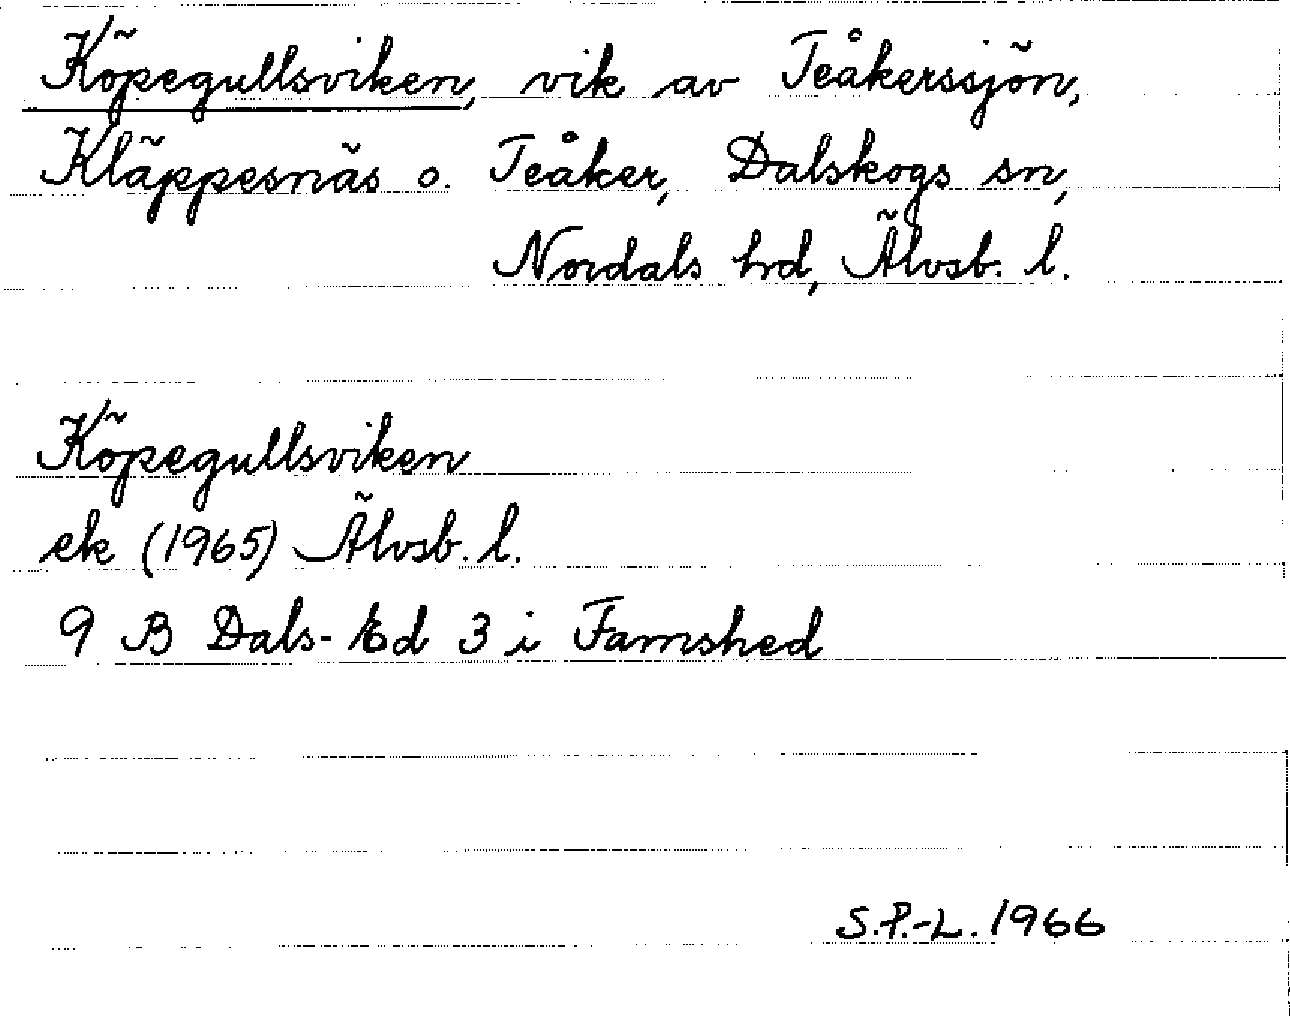 Köpegullsviken, vik av Teåkerssjön,
Kläppesnäs o. Teåker, Dalskogs sn,
Nordals hrd, Älvsb. l.
Köpegullsviken
ek (1965) Älvsb. l.
9 B Dals-Ed 3 i Famshed
S.P.-L. 1966